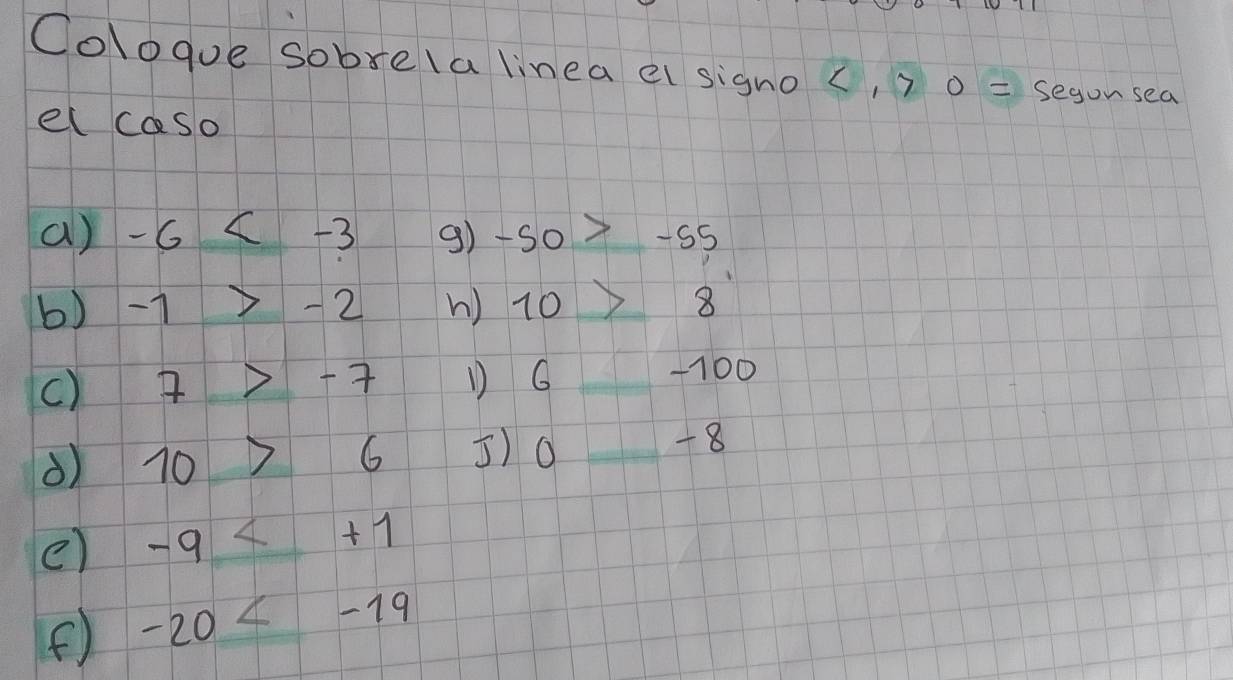 Cologue sobre la linea el signo <, > o = segun sea
el caso
a) -6 < -3 g) -50 > -55
b) -1 > -2 h) 10 > 8
c) 7 > -7 i) 6 __ -100
d) 10 > 6 J) 0 __ -8
e) -9 < +1
f) -20 < -19